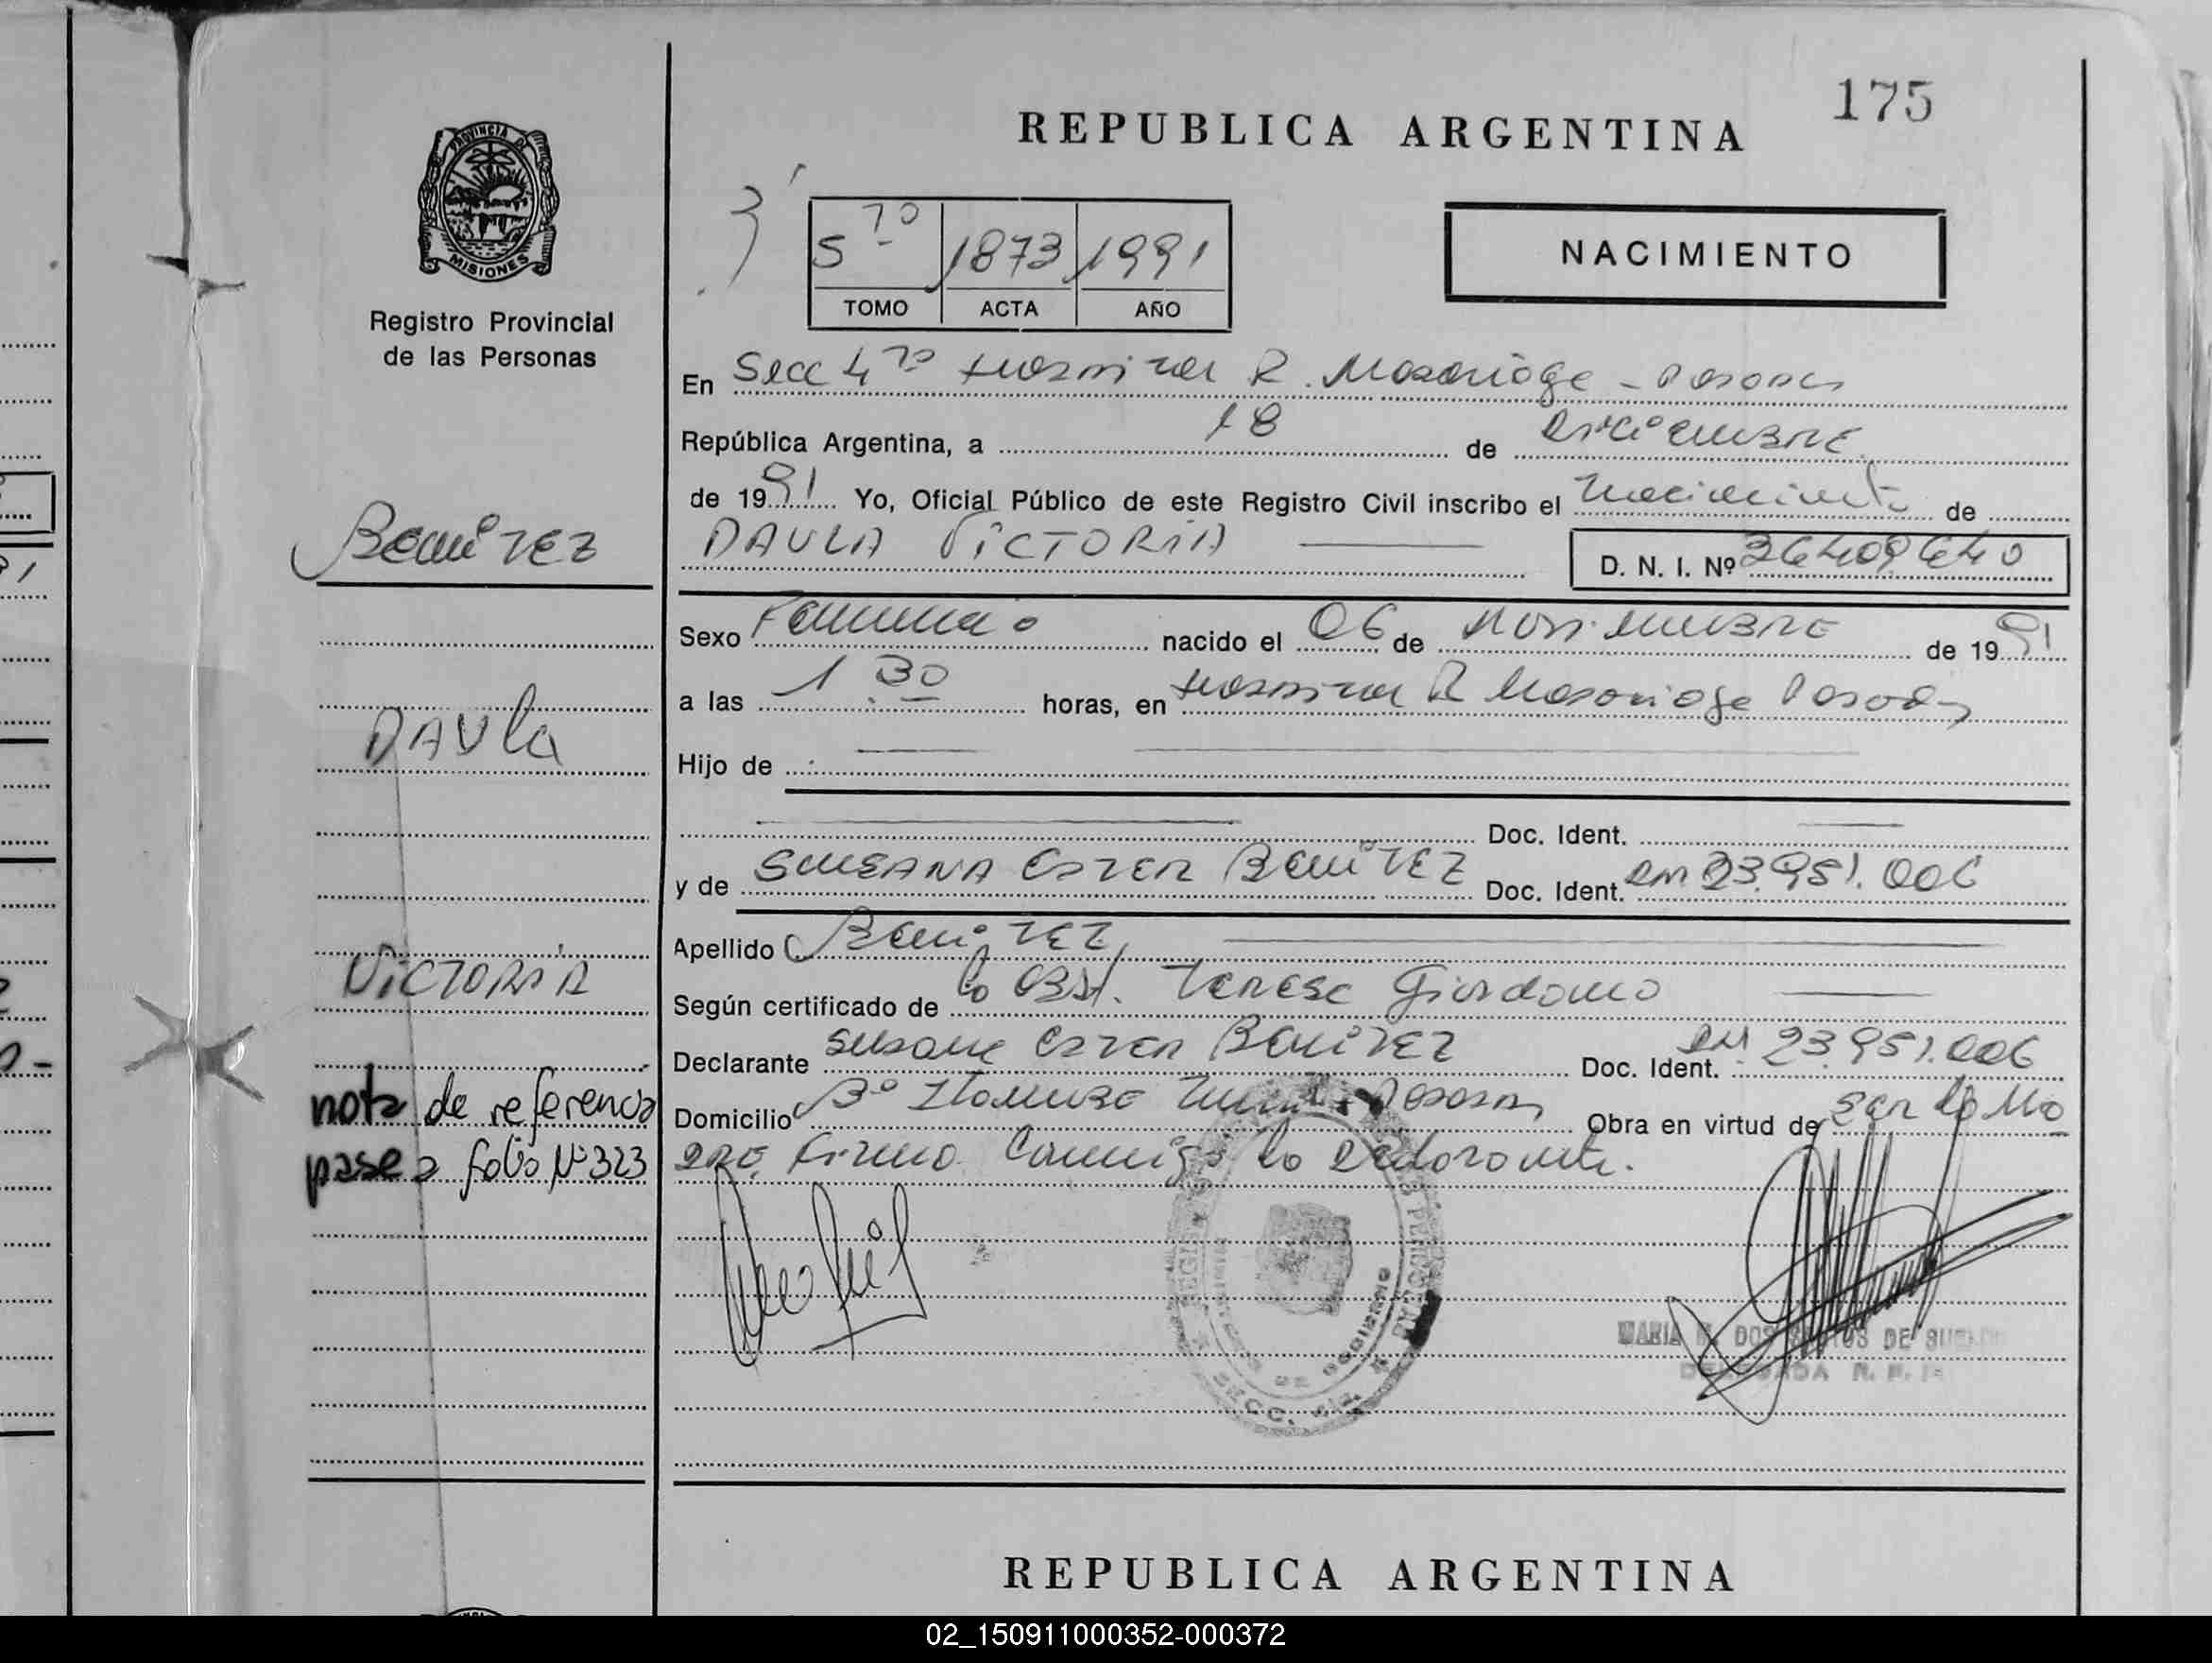 175
REPUBLICA ARGENTINA
PROVINCIA DE
MISIONES
Registro Provincial
de las Personas
NACIMIENTO
5 to 1873 1991
TOMO ACTA AÑO
En Secc 4 ta Hospital R. Madariaga - Posadas
República Argentina, a 18 de Diciembre
de 1991 Yo, Oficial Público de este Registro Civil inscribo el nacimiento de
DAULA VICTORIA
D. N. I. Nº 36409640
Benitez
DAULA
VICTORIA
nota de referencia
pase a folio Nº 323
Sexo Femenino nacido el 06 de Noviembre de 1991
a las 1.30 horas, en Hospital R Madariaga Posadas
Hijo de
Doc. Ident.
y de SUSANA Ester Benitez Doc. Ident. DNI 23.951.006
Apellido Benitez
Según certificado de la Obst. Teresa Giordano
Declarante Susana Ester Benitez Doc. Ident. DNI 23.951.006
Domicilio Bº Posadas Obra en virtud de ser la Ma
dre. Firma Conmigo la declarante.
MARIA DOS DE
R. P.
SECC.
REPUBLICA ARGENTINA
02_150911000352-000372